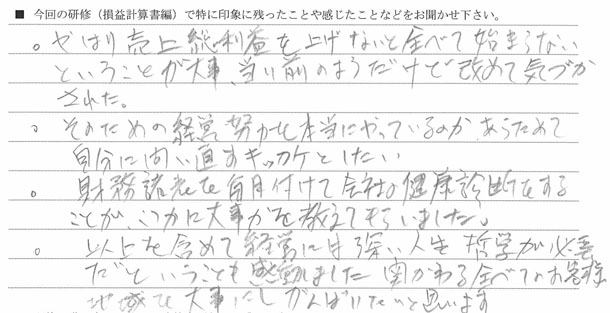 ■ 今回の研修（損益計算書編）で特に印象に残ったことや感じたことなどをお聞かせ下さい。
。やはり売上総利益を上げないと全べて始まらない
ということが大事、当り前のようだけで改めて気づか
された。
。そのための経営努力を本当にやっているのか、あらためて
自分に向い直すキッカケとしたい
。財務諸表を毎月付けて会社の健康診断をする
ことが、いかに大事かを教えてもらいました。
。以上を含めて経営には深い人生哲学が必要
だということも感動しました 関わる全べてのお客様
地域を大事にしがんばりたいと思います